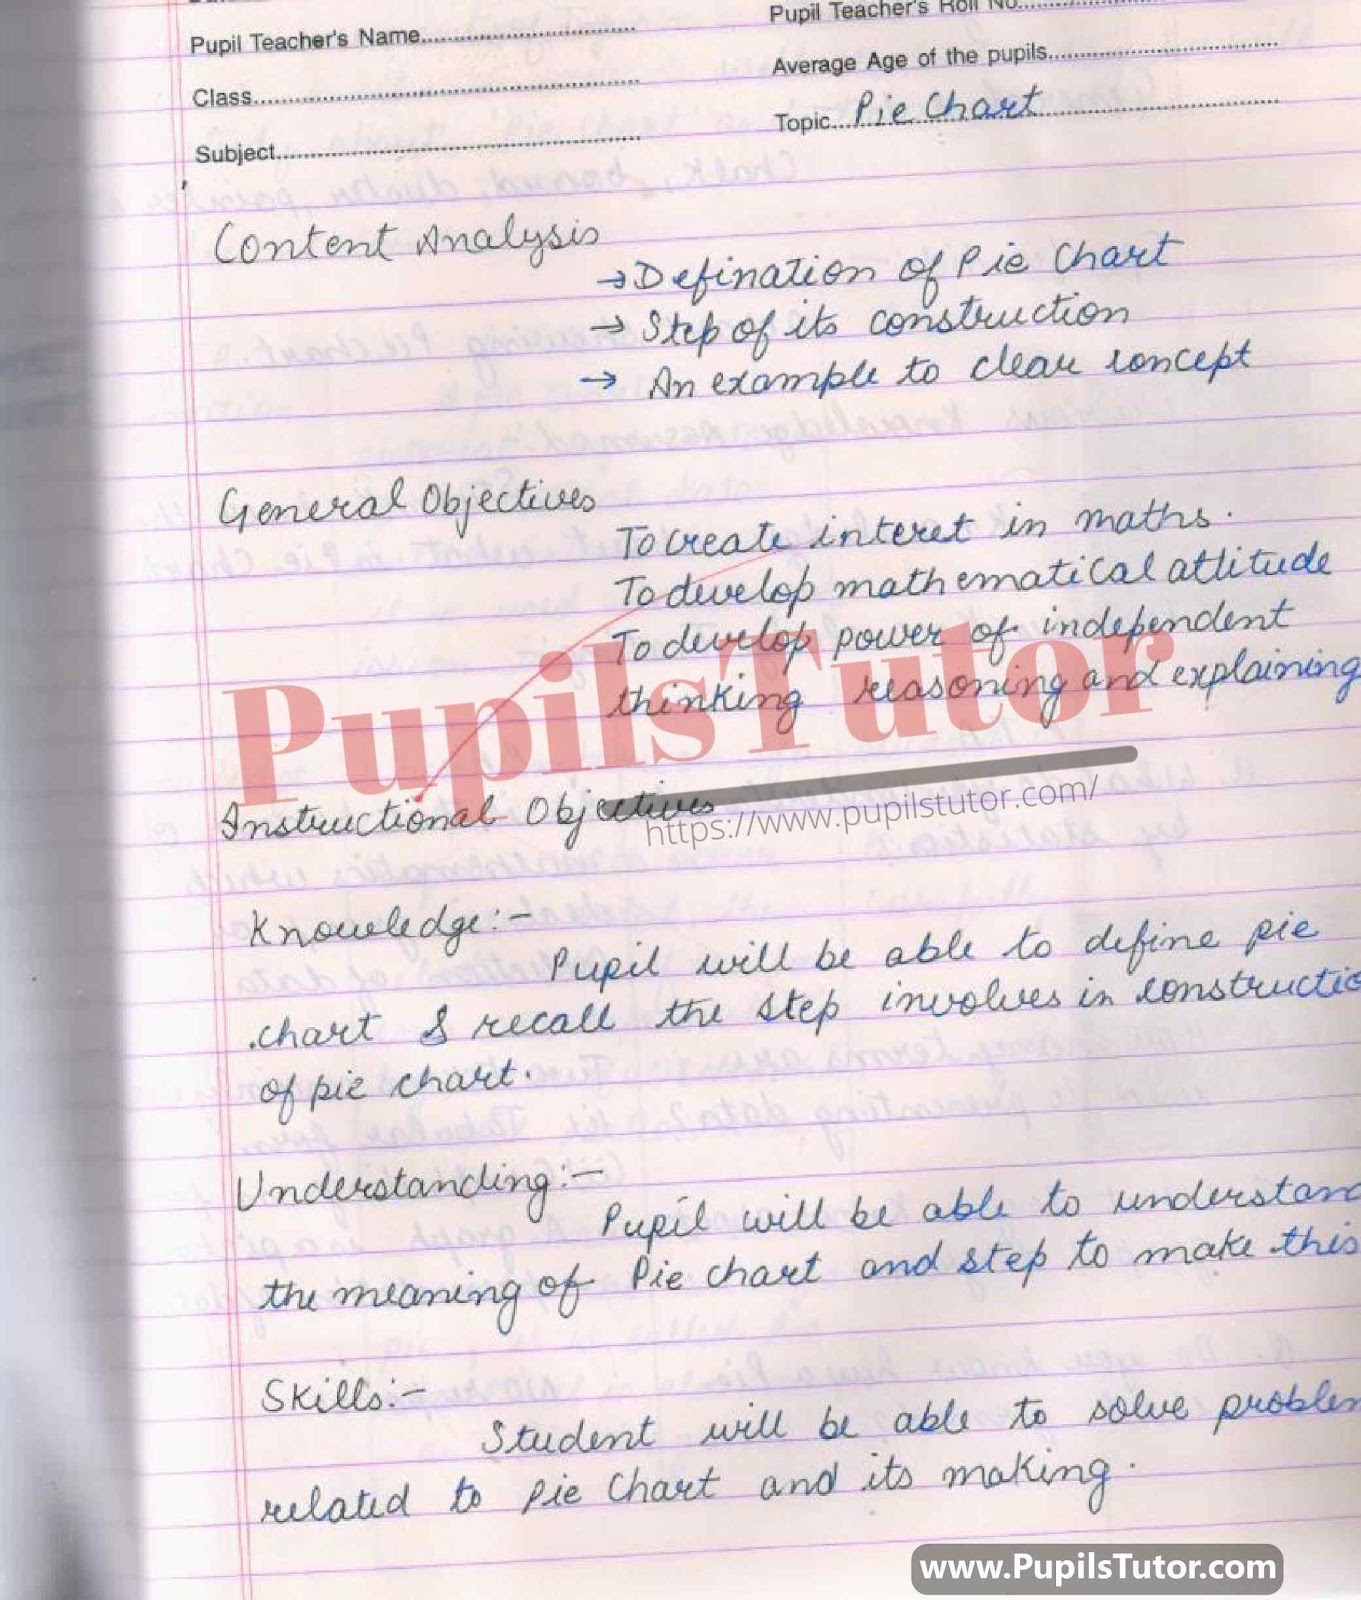 Pupil Teacher's Roll No.
Pupil Teacher's Name
Average Age of the pupils
Class
Topic Pie Chart
Subject
Content Analysis
→ Defination of Pie Chart
→ Step of its construction
→ An example to clear concept
General Objectives
To create interet in maths.
To develop mathematical attitude
To develop power of independent
thinking reasoning and explaining
PupilsTutor
https://www.pupilstutor.com/
Instructional Objectives
Knowledge:-
Pupil will be able to define pie
chart & recall the step involves in constructio
of pie chart.
Understanding:-
Pupil will be able to understand
the meaning of Pie chart and step to make this
Skills:-
Student will be able to solve problem
related to Pie Chart and its making.
www.PupilsTutor.com